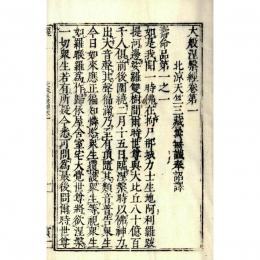 大般涅槃經卷第一
北涼天竺三藏曇無讖奉 詔譯
壽命品第一之一
如是我聞一時佛在拘尸那城力士生地阿利羅跋
提河邊娑羅雙樹間爾時世尊與大比丘八十億百
千人俱前後圍繞二月十五日臨涅槃時以佛神力
出大音聲其聲遍滿乃至有頂隨其類音普告衆生
今日如來應正遍知憐愍衆生覆護衆生等視衆生
如羅睺羅爲作歸依屋舍室宅大覺世尊將欲涅槃
一切衆生若有所疑今悉可問爲最後問爾時世尊